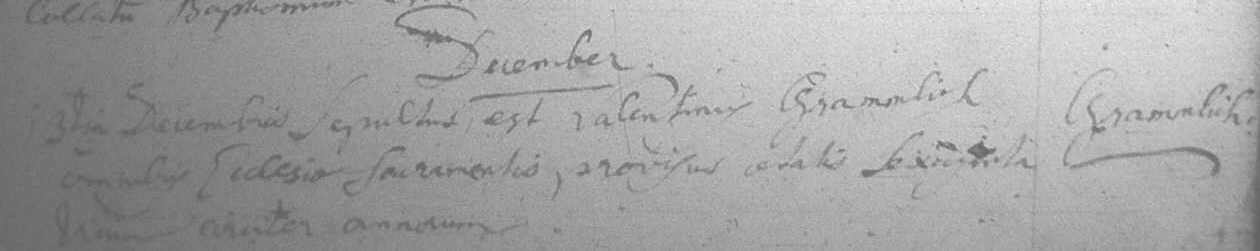 Collatu Baptismum
December.
3tia Decembris Sepultus est valentinus Grammlich Grammlich
omnibus Eclesia Sacramentis, provisus aetatis sexaginta
trium circiter annorum.